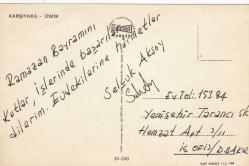 KARŞIYAKA - İZMİR
Ramazan Bayramını
Kutlar, işlerinde başarılar
dilerim. Evdekilerine hürmetler
Selçuk Aksoy
Ev Tel: 153 84
Yenişehir Tarancı Sk
Hamzat Apt 2/11
İŞ OFİS/D.BAKIR
35-260